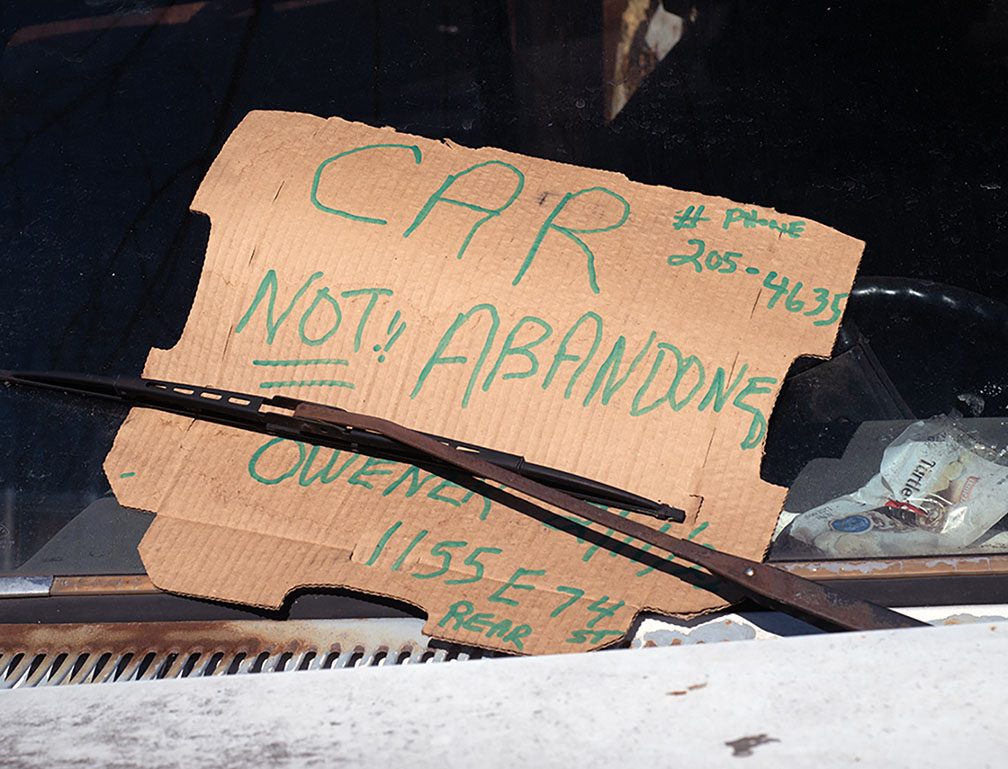 CAR
# PHONE
205-4635
NOT!! ABANDONED
OWENER
1155 E 74
REAR ST
Turtle